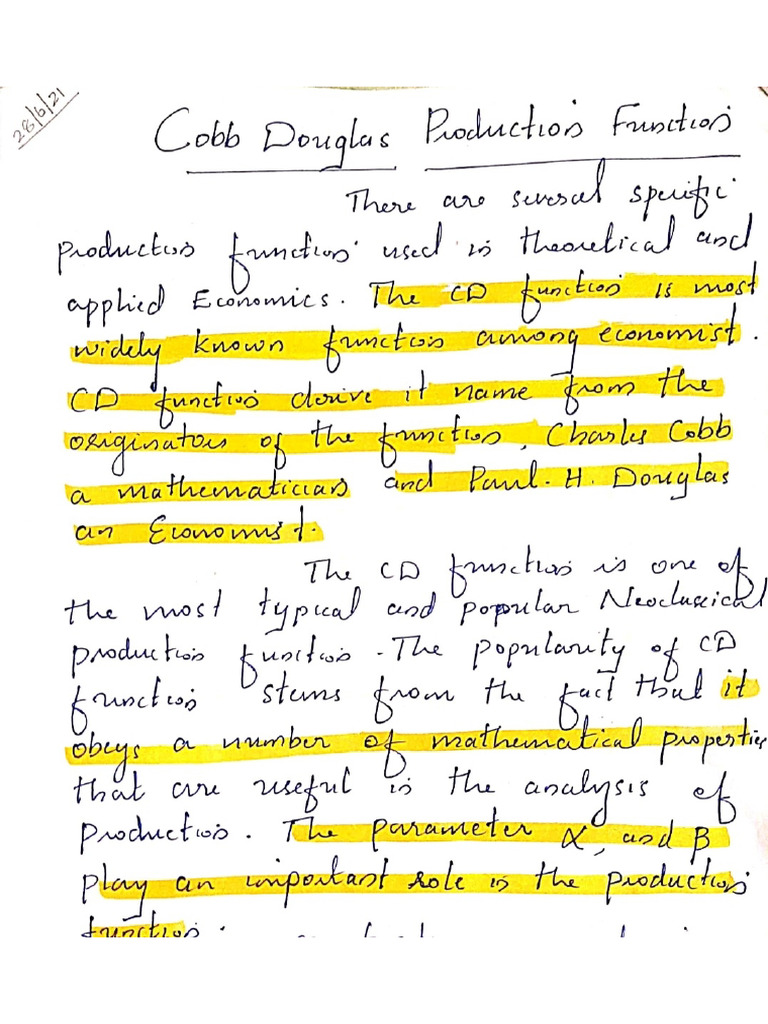 28/6/21
Cobb Douglas Production Function
There are several specific
production function used in theoretical and
applied Economics. The CD function is most
widely known function among economist.
CD function derive it name from the
originators of the function, Charles Cobb
a mathematician and Paul. H. Douglas
an Economist.
The CD function is one of
the most typical and popular Neoclassical
production function. The popularity of CD
function stems from the fact that it
obeys a number of mathematical properties
that are useful in the analysis of
production. The parameter α, and β
play an important role in the production
function.